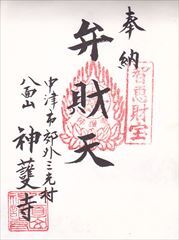 奉納
智恵財宝
弁財天
中津市郊外三光村
八面山
神護寺